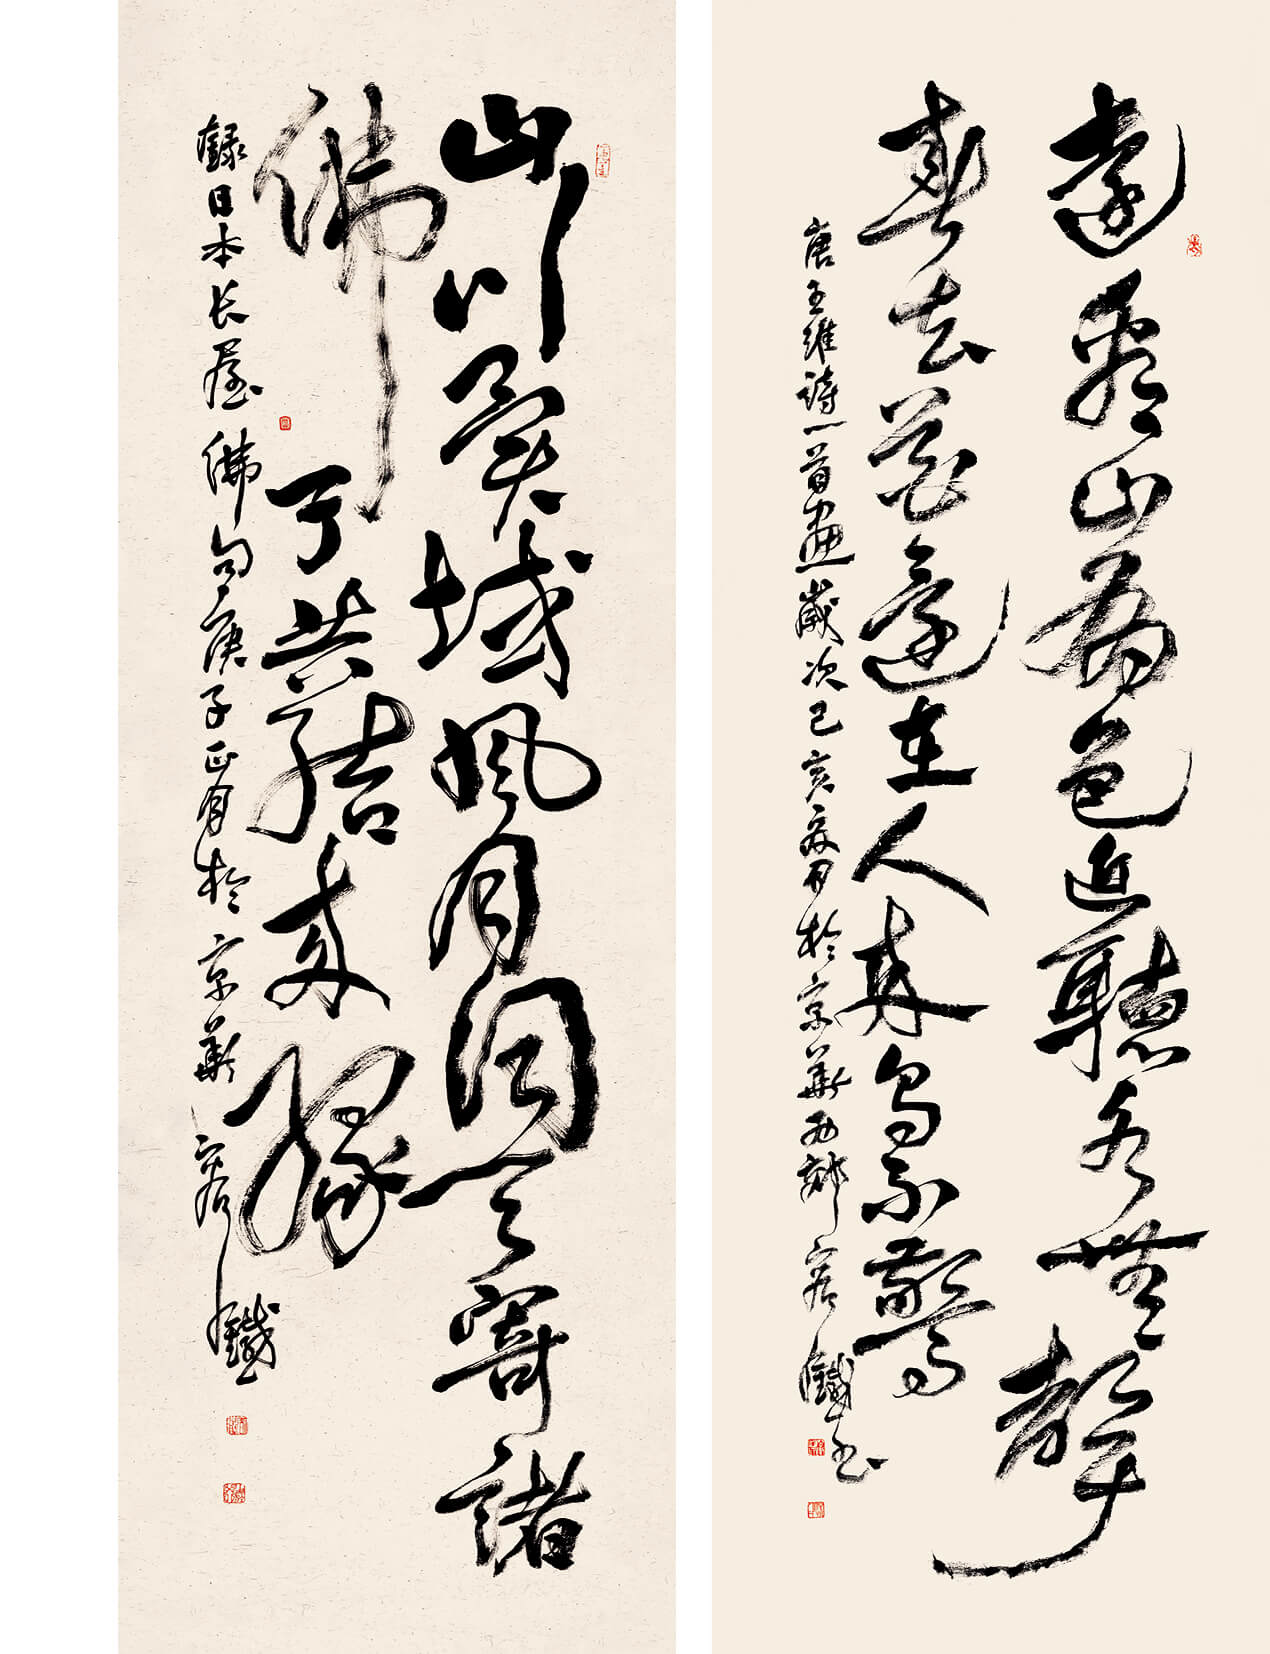 遠看山有色近聽水無聲
春去花還在人來鳥不驚
唐王維詩一首畫歲次己亥於京華西郊容鐵書
山川異域風月同天寄諸
佛子共結來緣
録日本长屋佛句庚子正月於京華容鐵